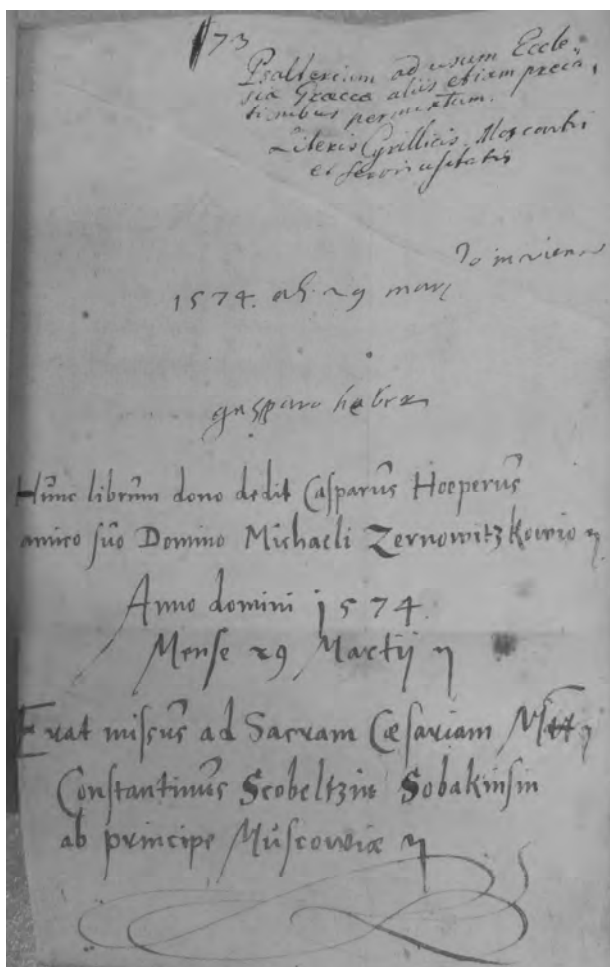 173
Psalterium ad usum Eccle-
sia Græca aliis etiam preca-
tionibus permixtum.
Literis Cyrillicis Moscovitis
et servis usitatis
1574. adi 29 marz
Jo in vienna
gasparo heber
Hunc librum dono dedit Casparus Hoeperus
amico suo Domino Michaeli Zernowitzkowio
Anno domini 1574.
Mense 29 Martij
Erat missus ad Sacram Cæsariam Mtt
Constantinus Scobeltzin Sobakinsin
ab principe Muscowiæ